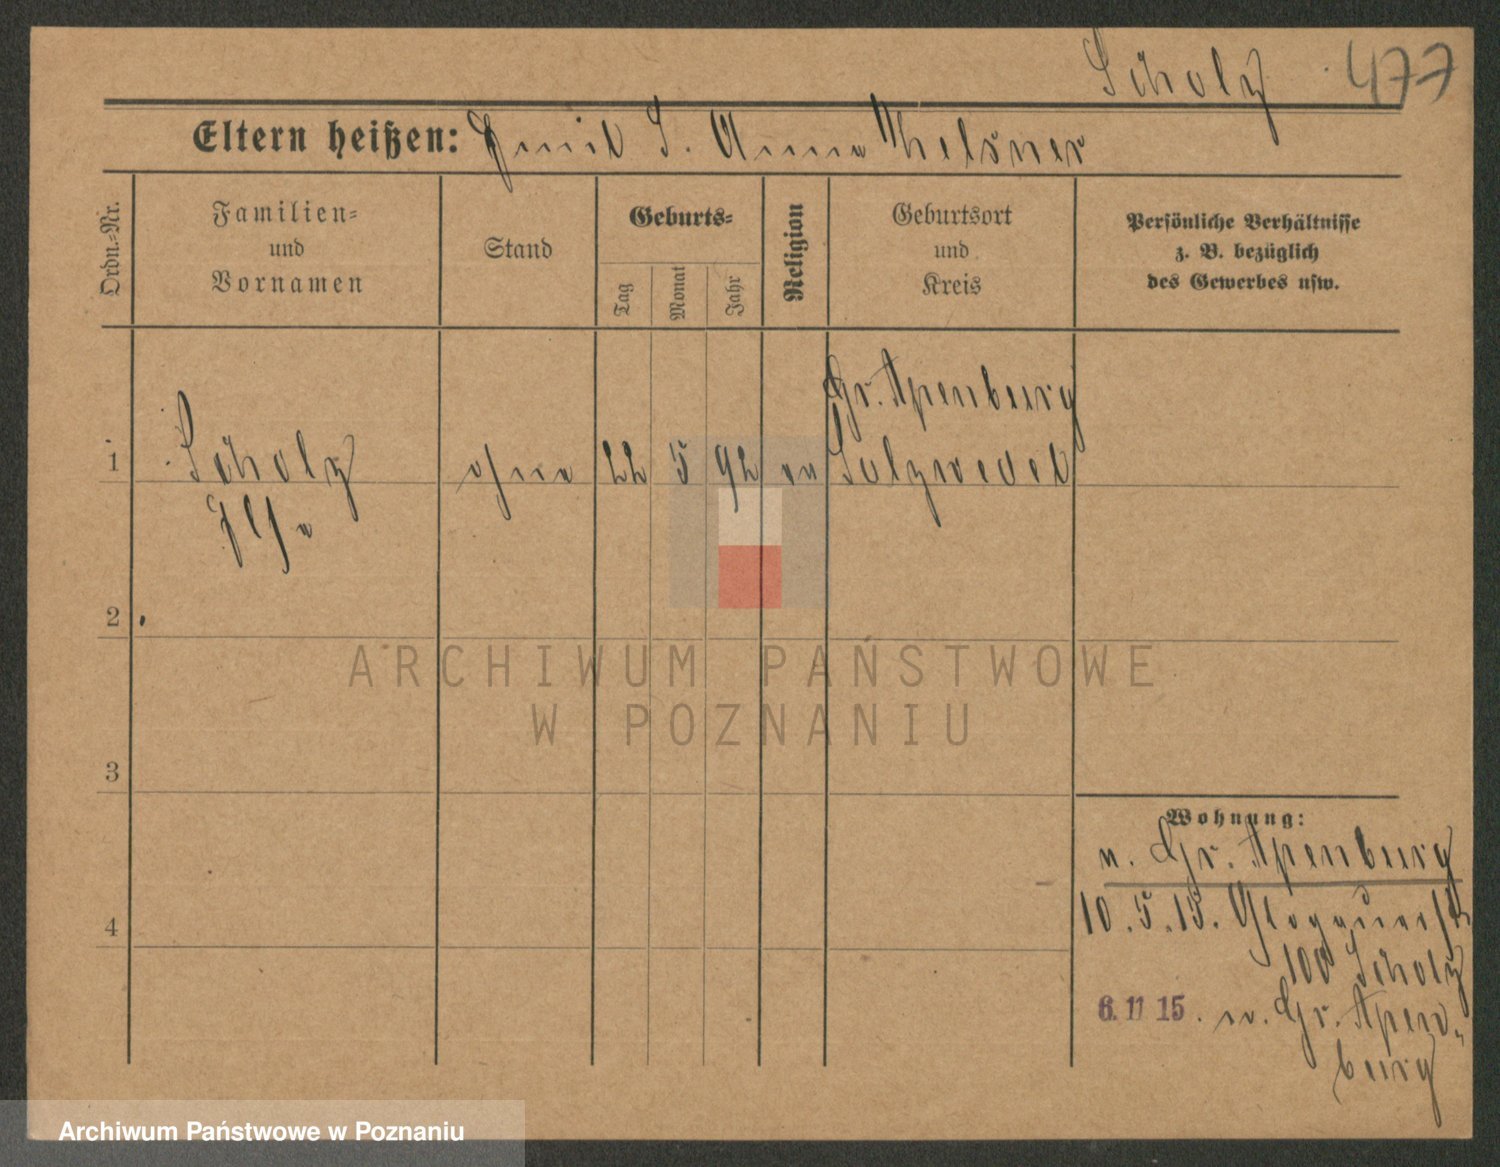 Scholz 477
Eltern heißen: Emil S. Anna Thelsner
Ordn.-Nr.
Familien-
und
Vornamen
Stand
Geburts-
Tag
Monat
Jahr
Religion
Geburtsort
und
Kreis
Persönliche Verhältnisse
z. B. bezüglich
des Gewerbes usw.
Gr. Apenburg
1 Scholz ohne 22 5 92 ev Salzwedel
Ilse
2
ARCHIWUM PAŃSTWOWE
W POZNANIU
3
Wohnung:
n. Gr. Apenburg
4
10. 5. 15. Glogauerstr
100 Scholz
6. 11 15. n. Gr. Apen-
burg
Archiwum Państwowe w Poznaniu